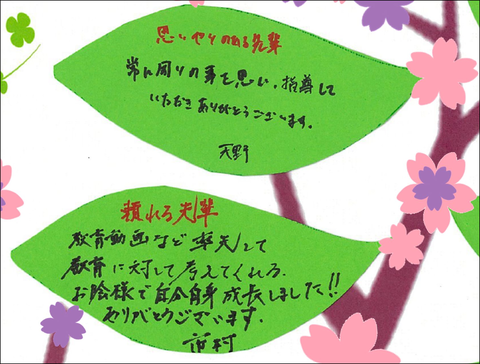 思いやりのある先輩
常に周りの事を思い、指導して
いただきありがとうございます。
天野
頼れる先輩
教育動画など率先して
教育に対して考えてくれる。
お陰様で自分自身成長しました!!
ありがとうございます。
市村